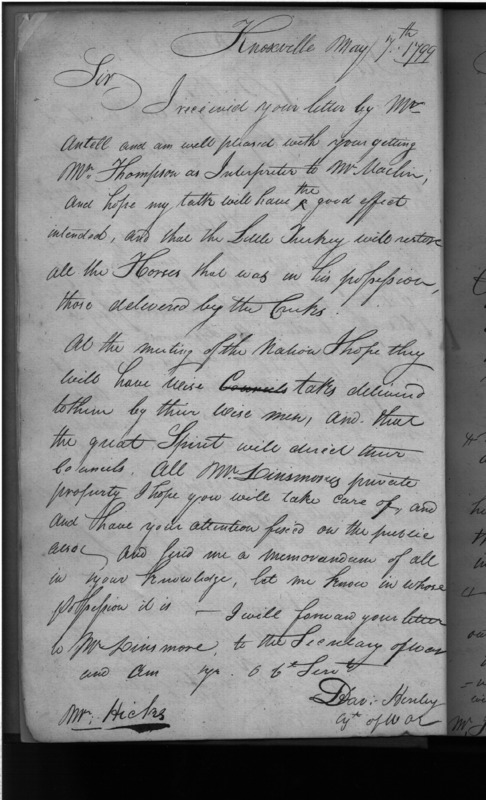 Knoxville May 7th 1799
Sir
I received your letter by Mr
Antell and am well pleased with your getting
Mr. Thompson as Interpreter to Mr Maclin,
and hope my talk will have the good effect
intended, and that the Little Turkey will restore
all the Horses that was in his possession,
those delivered by the Creeks.
At the meeting of the Nation I hope they
will have wise Councils talks delivered
to them by their wise men, and that
the great Spirit will direct their
Councils. All Mr. Dinsmores private
property I hope you will take care of, and
and have your attention fixed on the public
also, And send me a memorandum of all
in your knowledge, let me know in whose
possession it is — I will forward your letter
to Mr Dinsmore, to the Secretary of War
and am yr. O bt Servt
Davi. Henley
Agt of War
Mr. Hicks